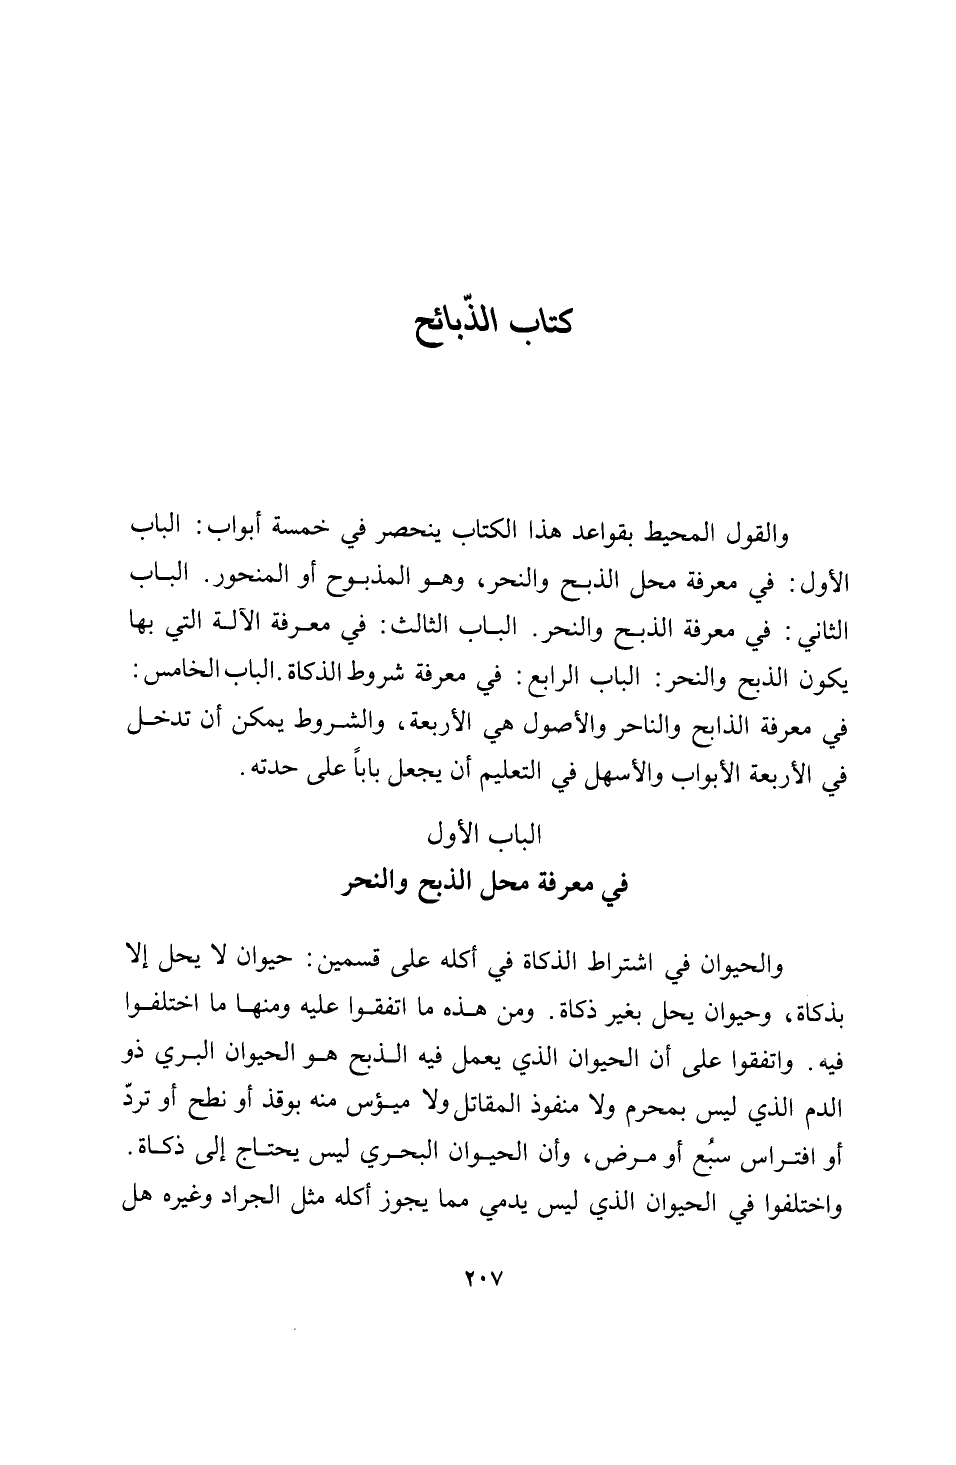 كتاب الذّبائح
والقول المحيط بقواعد هذا الكتاب ينحصر في خمسة أبواب: الباب
الأول: في معرفة محل الذبح والنحر، وهو المذبوح أو المنحور. الباب
الثاني: في معرفة الذبح والنحر. الباب الثالث: في معرفة الآلة التي بها
يكون الذبح والنحر: الباب الرابع: في معرفة شروط الذكاة. الباب الخامس:
في معرفة الذابح والناحر والأصول هي الأربعة، والشروط يمكن أن تدخل
في الأربعة الأبواب والأسهل في التعليم أن يجعل باباً على حدته.
الباب الأول
في معرفة محل الذبح والنحر
والحيوان في اشتراط الذكاة في أكله على قسمين: حيوان لا يحل إلا
بذكاة، وحيوان يحل بغير ذكاة. ومن هذه ما اتفقوا عليه ومنها ما اختلفوا
فيه. واتفقوا على أن الحيوان الذي يعمل فيه الذبح هو الحيوان البري ذو
الدم الذي ليس بمحرم ولا منفوذ المقاتل ولا ميؤس منه بوقذ أو نطح أو تردّ
أو افتراس سبُع أو مرض، وأن الحيوان البحري ليس يحتاج إلى ذكاة.
واختلفوا في الحيوان الذي ليس يدمي مما يجوز أكله مثل الجراد وغيره هل
٢٠٧